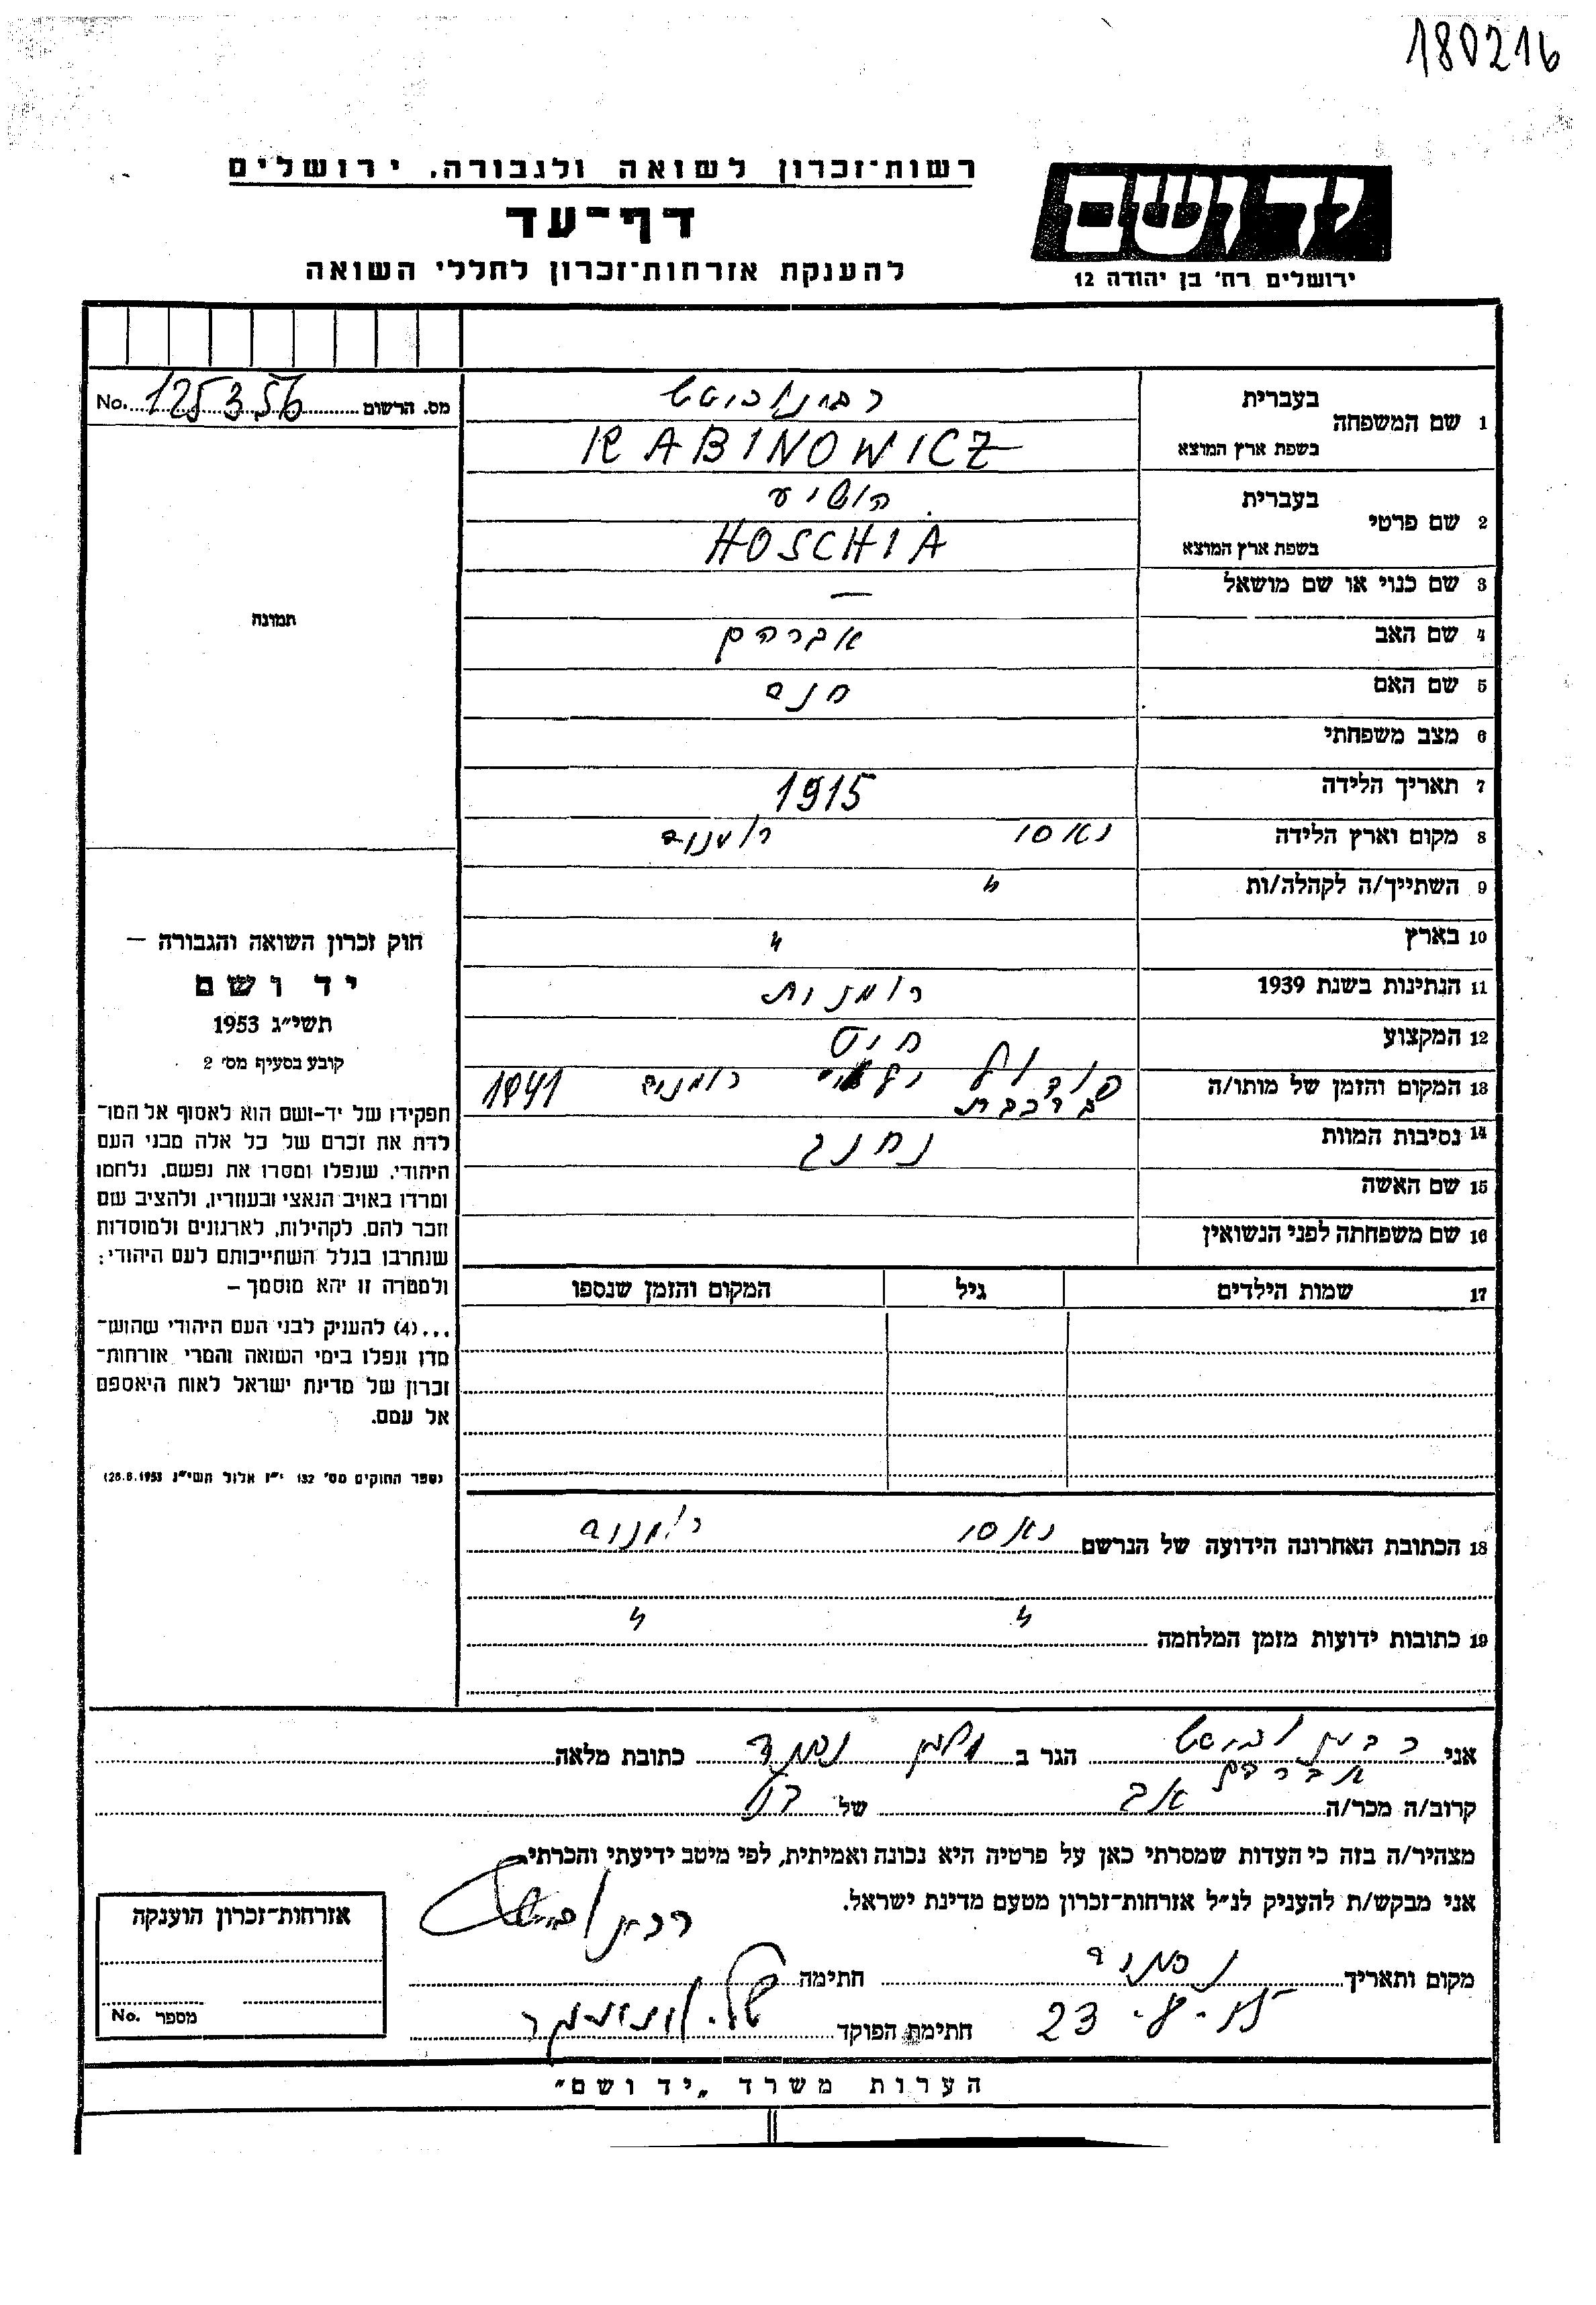 180216
רשות־זכרון לשואה ולגבורה, ירושלים
יד ושם
דף־עד
ירושלים רח' בן יהודה 12
להענקת אזרחות־זכרון לחללי השואה
מס. הרשום 125356 No.
1 שם המשפחה
בעברית רבינוביטש
בשפת ארץ המוצא RABINOWICZ
2 שם פרטי
בעברית הושיע
בשפת ארץ המוצא HOSCHIA
3 שם כנוי או שם מושאל —
4 שם האב אברהם
5 שם האם חנה
6 מצב משפחתי
7 תאריך הלידה 1915
8 מקום וארץ הלידה יאסי רומניה
9 השתייך/ה לקהלה/ות "
10 בארץ "
11 הנתינות בשנת 1939 רומנית
12 המקצוע חיט
13 המקום והזמן של מותו/ה רומניה 1941
ברכבת
14 נסיבות המוות נחנק
15 שם האשה
16 שם משפחתה לפני הנשואין
17 שמות הילדים גיל המקום והזמן שנספו
18 הכתובת האחרונה הידועה של הנרשם יאסי רומניה
19 כתובות ידועות מזמן המלחמה " "
תמונה
חוק זכרון השואה והגבורה —
יד ושם
תשי״ג 1953
קובע בסעיף מס' 2
תפקידו של יד-ושם הוא לאסוף אל המו־
לדת את זכרם של כל אלה מבני העם
היהודי, שנפלו ומסרו את נפשם, נלחמו
ומרדו באויב הנאצי ובעוזריו, ולהציב שם
וזכר להם, לקהילות, לארגונים ולמוסדות
שנחרבו בגלל השתייכותם לעם היהודי:
ולמטרה זו יהא מוסמך –
...(4) להעניק לבני העם היהודי שהוש־
מדו ונפלו בימי השואה והמרי אזרחות־
זכרון של מדינת ישראל לאות היאספם
אל עמם.
(ספר החוקים מס' 132 י״ז אלול תשי״ג 28.8.1953)
אני רבינוביטש אברהם הגר ב נתניה כתובת מלאה
קרוב/ה מכר/ה אב של
מצהיר/ה בזה כי העדות שמסרתי כאן על פרטיה היא נכונה ואמיתית, לפי מיטב ידיעתי והכרתי.
אני מבקש/ת להעניק לנ״ל אזרחות־זכרון מטעם מדינת ישראל.
רבינוביטש
מקום ותאריך נתניה חתימה
23 חתימת הפוקד
אזרחות־זכרון הוענקה
מספר No.
הערות משרד „יד ושם״